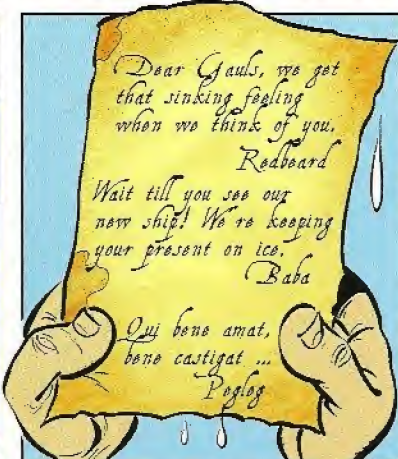 Dear Gauls, we get
that sinking feeling
when we think of you.
Redbeard
Wait till you see our
new ship! We re keeping
your present on ice.
Baba
Qui bene amat,
bene castigat ...
Pegleg